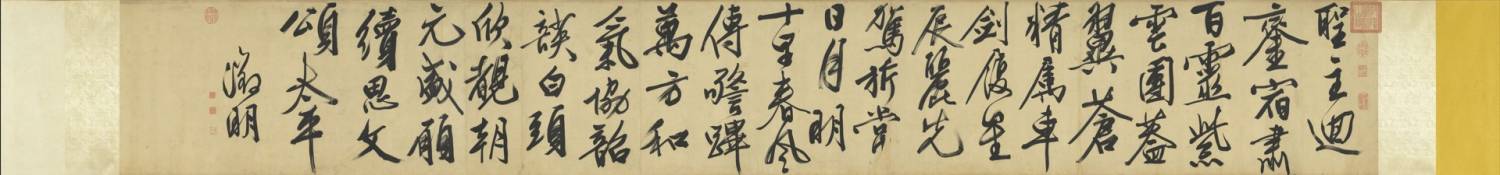 聖主迴
鑾宿肅
百靈紫
雲團蓋
翼蒼
精屬車
劍履星
辰麗先
駕旂常
日月明
十里春風
傳警蹕
萬方和
氣協韶
韺白頭
欣覩朝
元盛願
續思文
頌太平
徵明